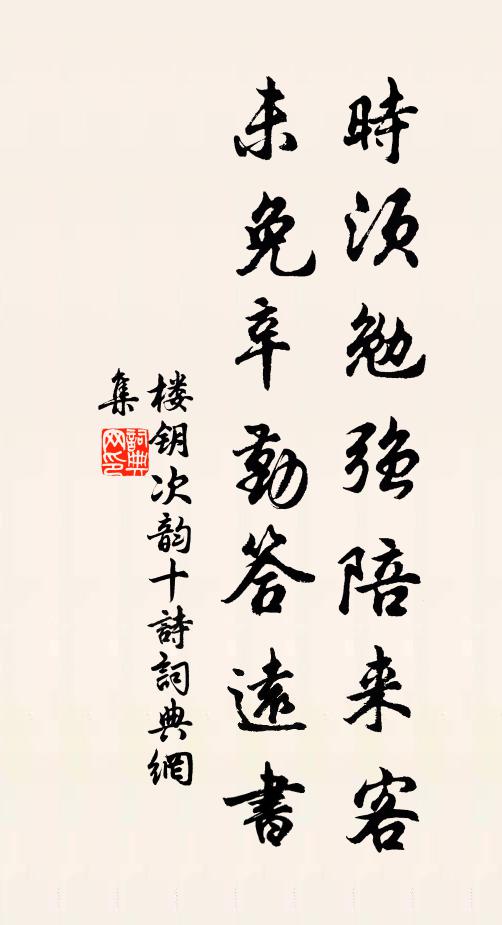 時須勉強陪来客
未免辛勤答遠書
楼钥次韵十詩詞典網
集
詞典网印